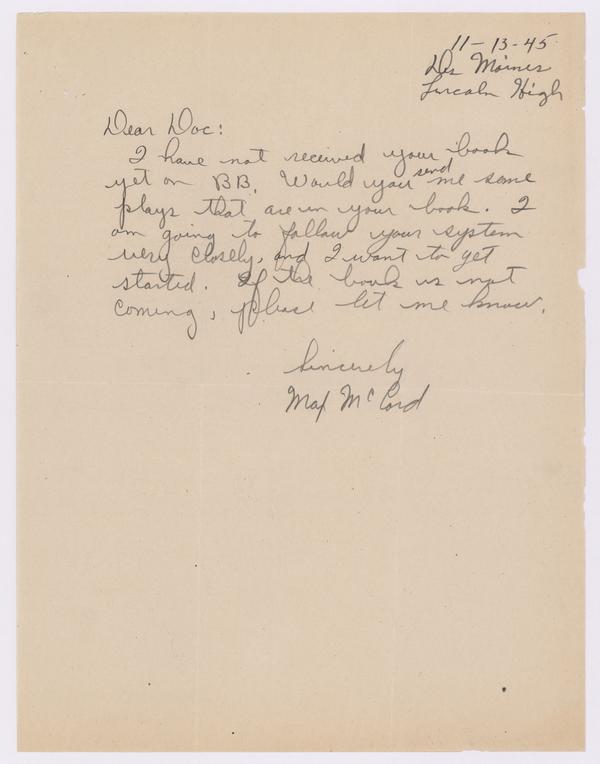 11-13-45
Des Moines
Lincoln High
Dear Doc:
I have not received your book
yet on BB. Would you send me some
plays that are in your book. I
am going to follow your system
very closely, and I want to get
started. If the book is not
coming, please let me know.
Sincerely
Max McCord